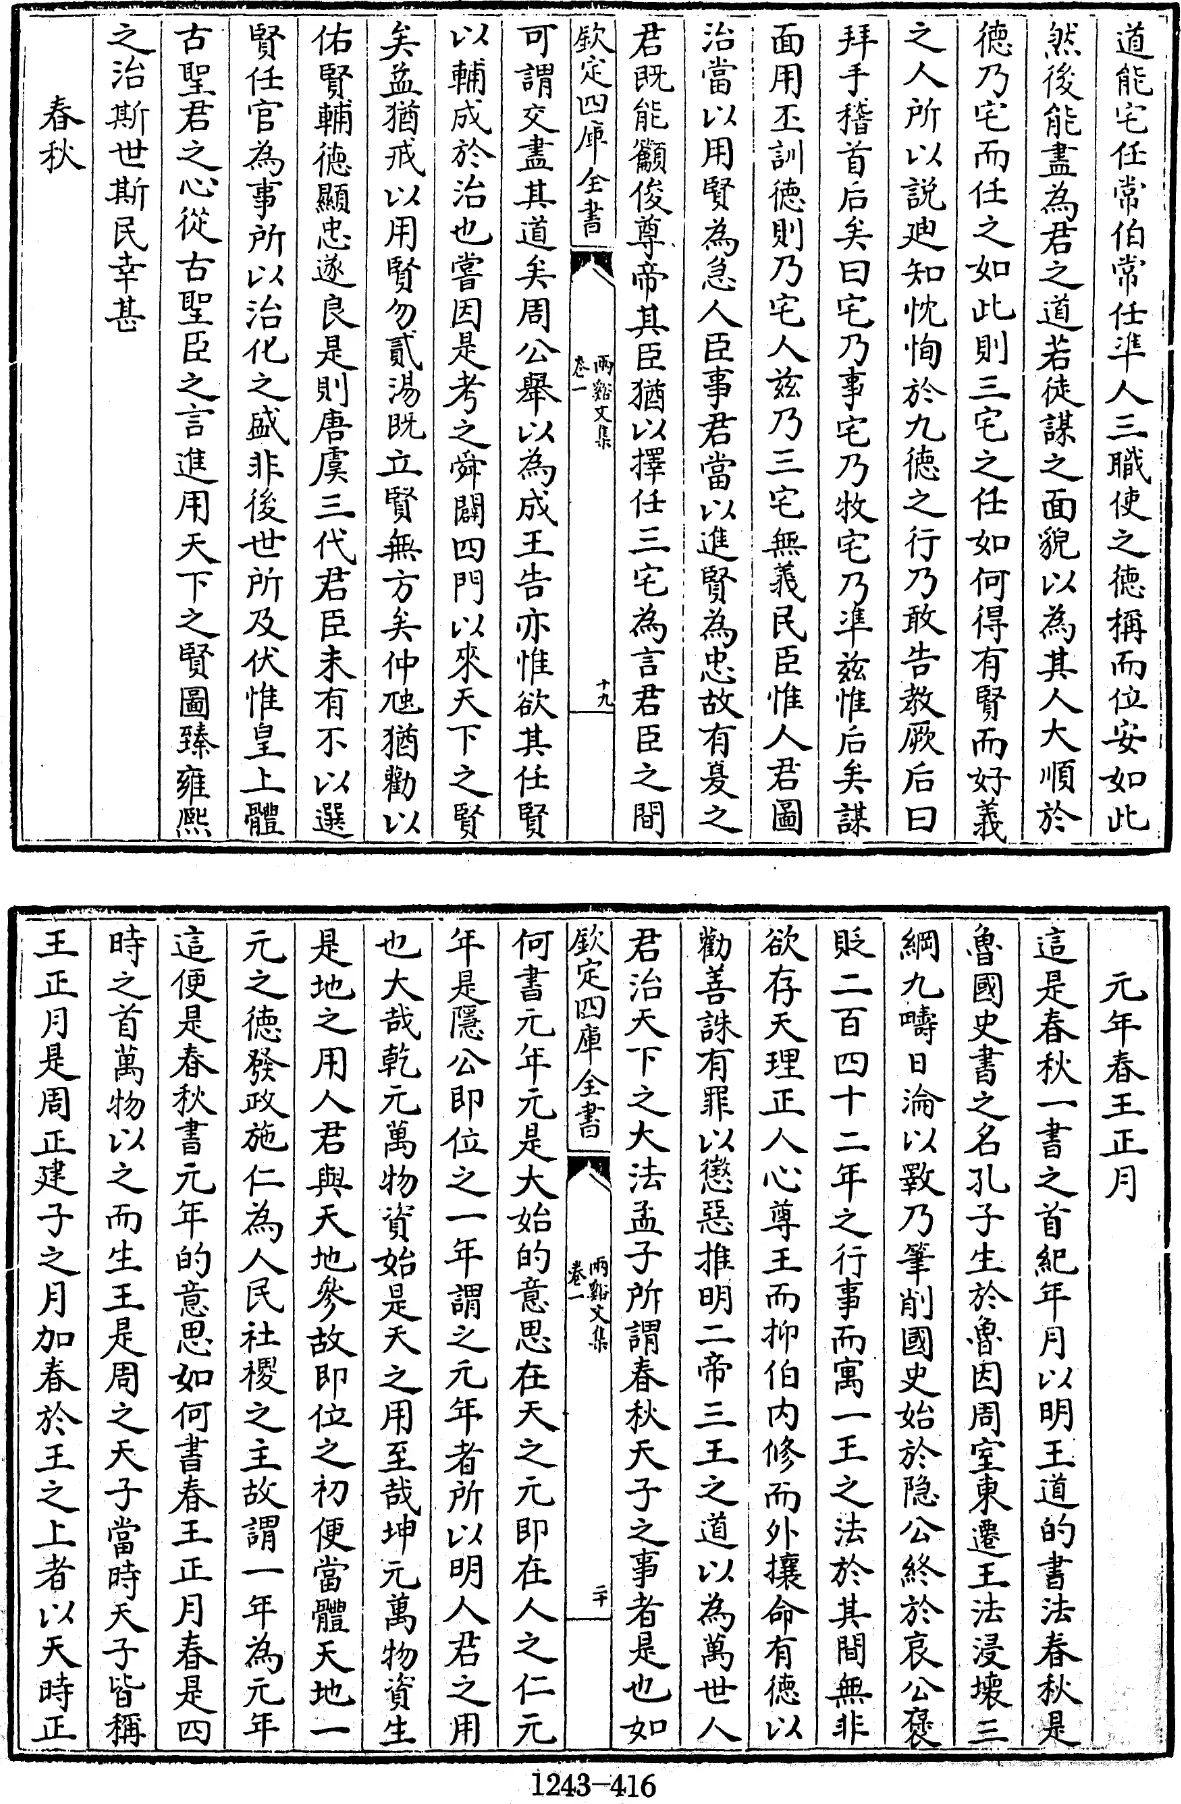 道能宅任常伯常任準人三職使之徳稱而位安如此
然後能盡為君之道若徒謀之面貌以為其人大順於
徳乃宅而任之如此則三宅之任如何得有賢而好義
之人所以説廸知忱恂於九徳之行乃敢告教厥后曰
拜手稽首后矣曰宅乃事宅乃牧宅乃凖兹惟后矣謀
面用丕訓徳則乃宅人兹乃三宅無義民臣惟人君圖
治當以用賢為急人臣事君當以進賢為忠故有夏之
君既能籲俊尊帝其臣猶以擇任三宅為言君臣之間
欽定四庫全書
兩谿文集
卷一
十九
可謂交盡其道矣周公舉以為成王告亦惟欲其任賢
以輔成於治也嘗因是考之舜闢四門以來天下之賢
矣益猶戒以用賢勿貳湯既立賢無方矣仲虺猶勸以
佑賢輔徳顯忠遂良是則唐虞三代君臣未有不以選
賢任官為事所以治化之盛非後世所及伏惟皇上體
古聖君之心從古聖臣之言進用天下之賢圖臻雍熈
之治斯世斯民幸甚
春秋
元年春王正月
這是春秋一書之首紀年月以明王道的書法春秋是
魯國史書之名孔子生於魯因周室東遷王法浸壊三
綱九疇日淪以斁乃筆削國史始於隐公終於哀公褒
貶二百四十二年之行事而寓一王之法於其間無非
欲存天理正人心尊王而抑伯内修而外攘命有徳以
勸善誅有罪以懲惡推明二帝三王之道以為萬世人
君治天下之大法孟子所謂春秋天子之事者是也如
欽定四庫全書
兩谿文集
卷一
二十
何書元年元是大始的意思在天之元即在人之仁元
年是隱公即位之一年謂之元年者所以明人君之用
也大哉乾元萬物資始是天之用至哉坤元萬物資生
是地之用人君與天地參故即位之初便當體天地一
元之徳發政施仁為人民社稷之主故謂一年為元年
這便是春秋書元年的意思如何書春王正月春是四
時之首萬物以之而生王是周之天子當時天子皆稱
王正月是周正建子之月加春於王之上者以天時正
1243-416